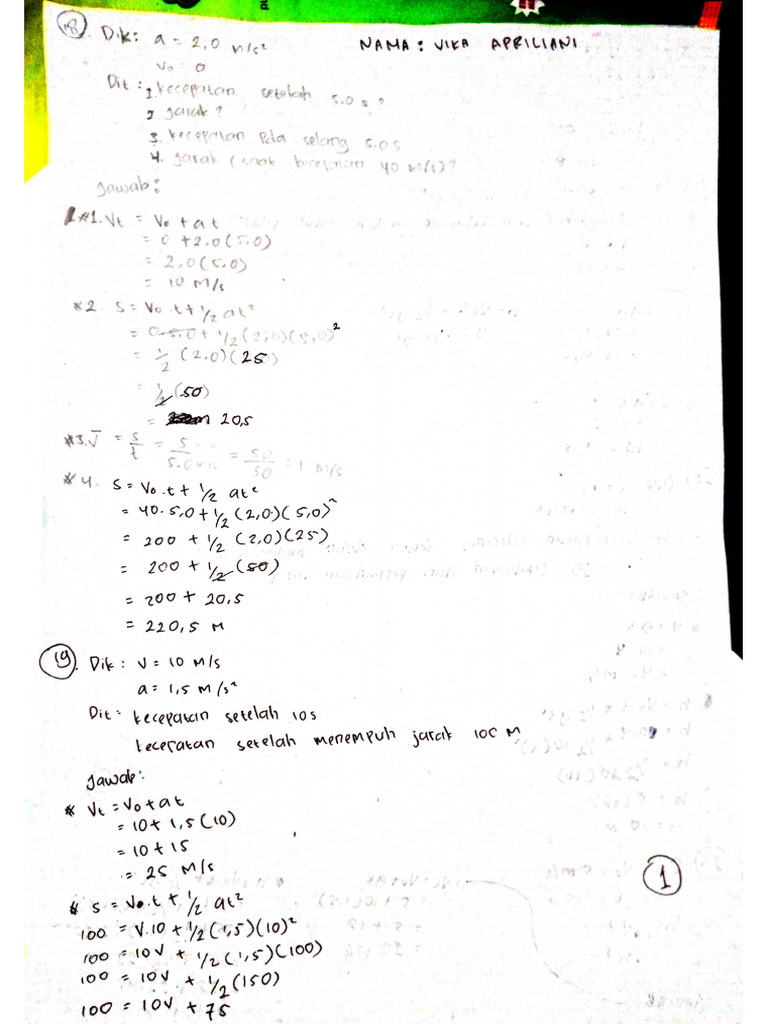 18. Dik: a = 2,0 m/s²
NAMA: VIKA APRILIANI
Vo = 0
Dit: 1. kecepatan setelah 5.0 s?
2. jarak?
3. kecepatan Pda selang 5.0 s
4. jarak (saat kecepatan 40 m/s)?
Jawab:
*1. Vt = Vo + a t
= 0 + 2.0 (5,0)
= 2,0 (5,0)
= 10 M/s
*2. S = Vo.t + 1/2 at²
= 0.5.0 + 1/2 (2,0)(5,0)²
= 1/2 (2,0)(25)
= 1/2 (50)
= 20,5
*3. V̄ = s/t = 5/5.0 = 50/50 = 1 M/s
*4. S = Vo.t + 1/2 at²
= 40.5,0 + 1/2 (2,0)(5,0)²
= 200 + 1/2 (2,0)(25)
= 200 + 1/2 (50)
= 200 + 20,5
= 220,5 M
19. Dik: V = 10 M/s
a = 1,5 M/s²
Dit: kecepatan setelah 10s
keceratan setelah menempuh jarak 100 M
Jawab:
* Vt = Vo + at
= 10 + 1,5 (10)
= 10 + 15
= 25 M/s
1
* S = Vo.t + 1/2 at²
100 = V.10 + 1/2 (1,5)(10)²
100 = 10V + 1/2 (1,5)(100)
100 = 10V + 1/2 (150)
100 = 10V + 75